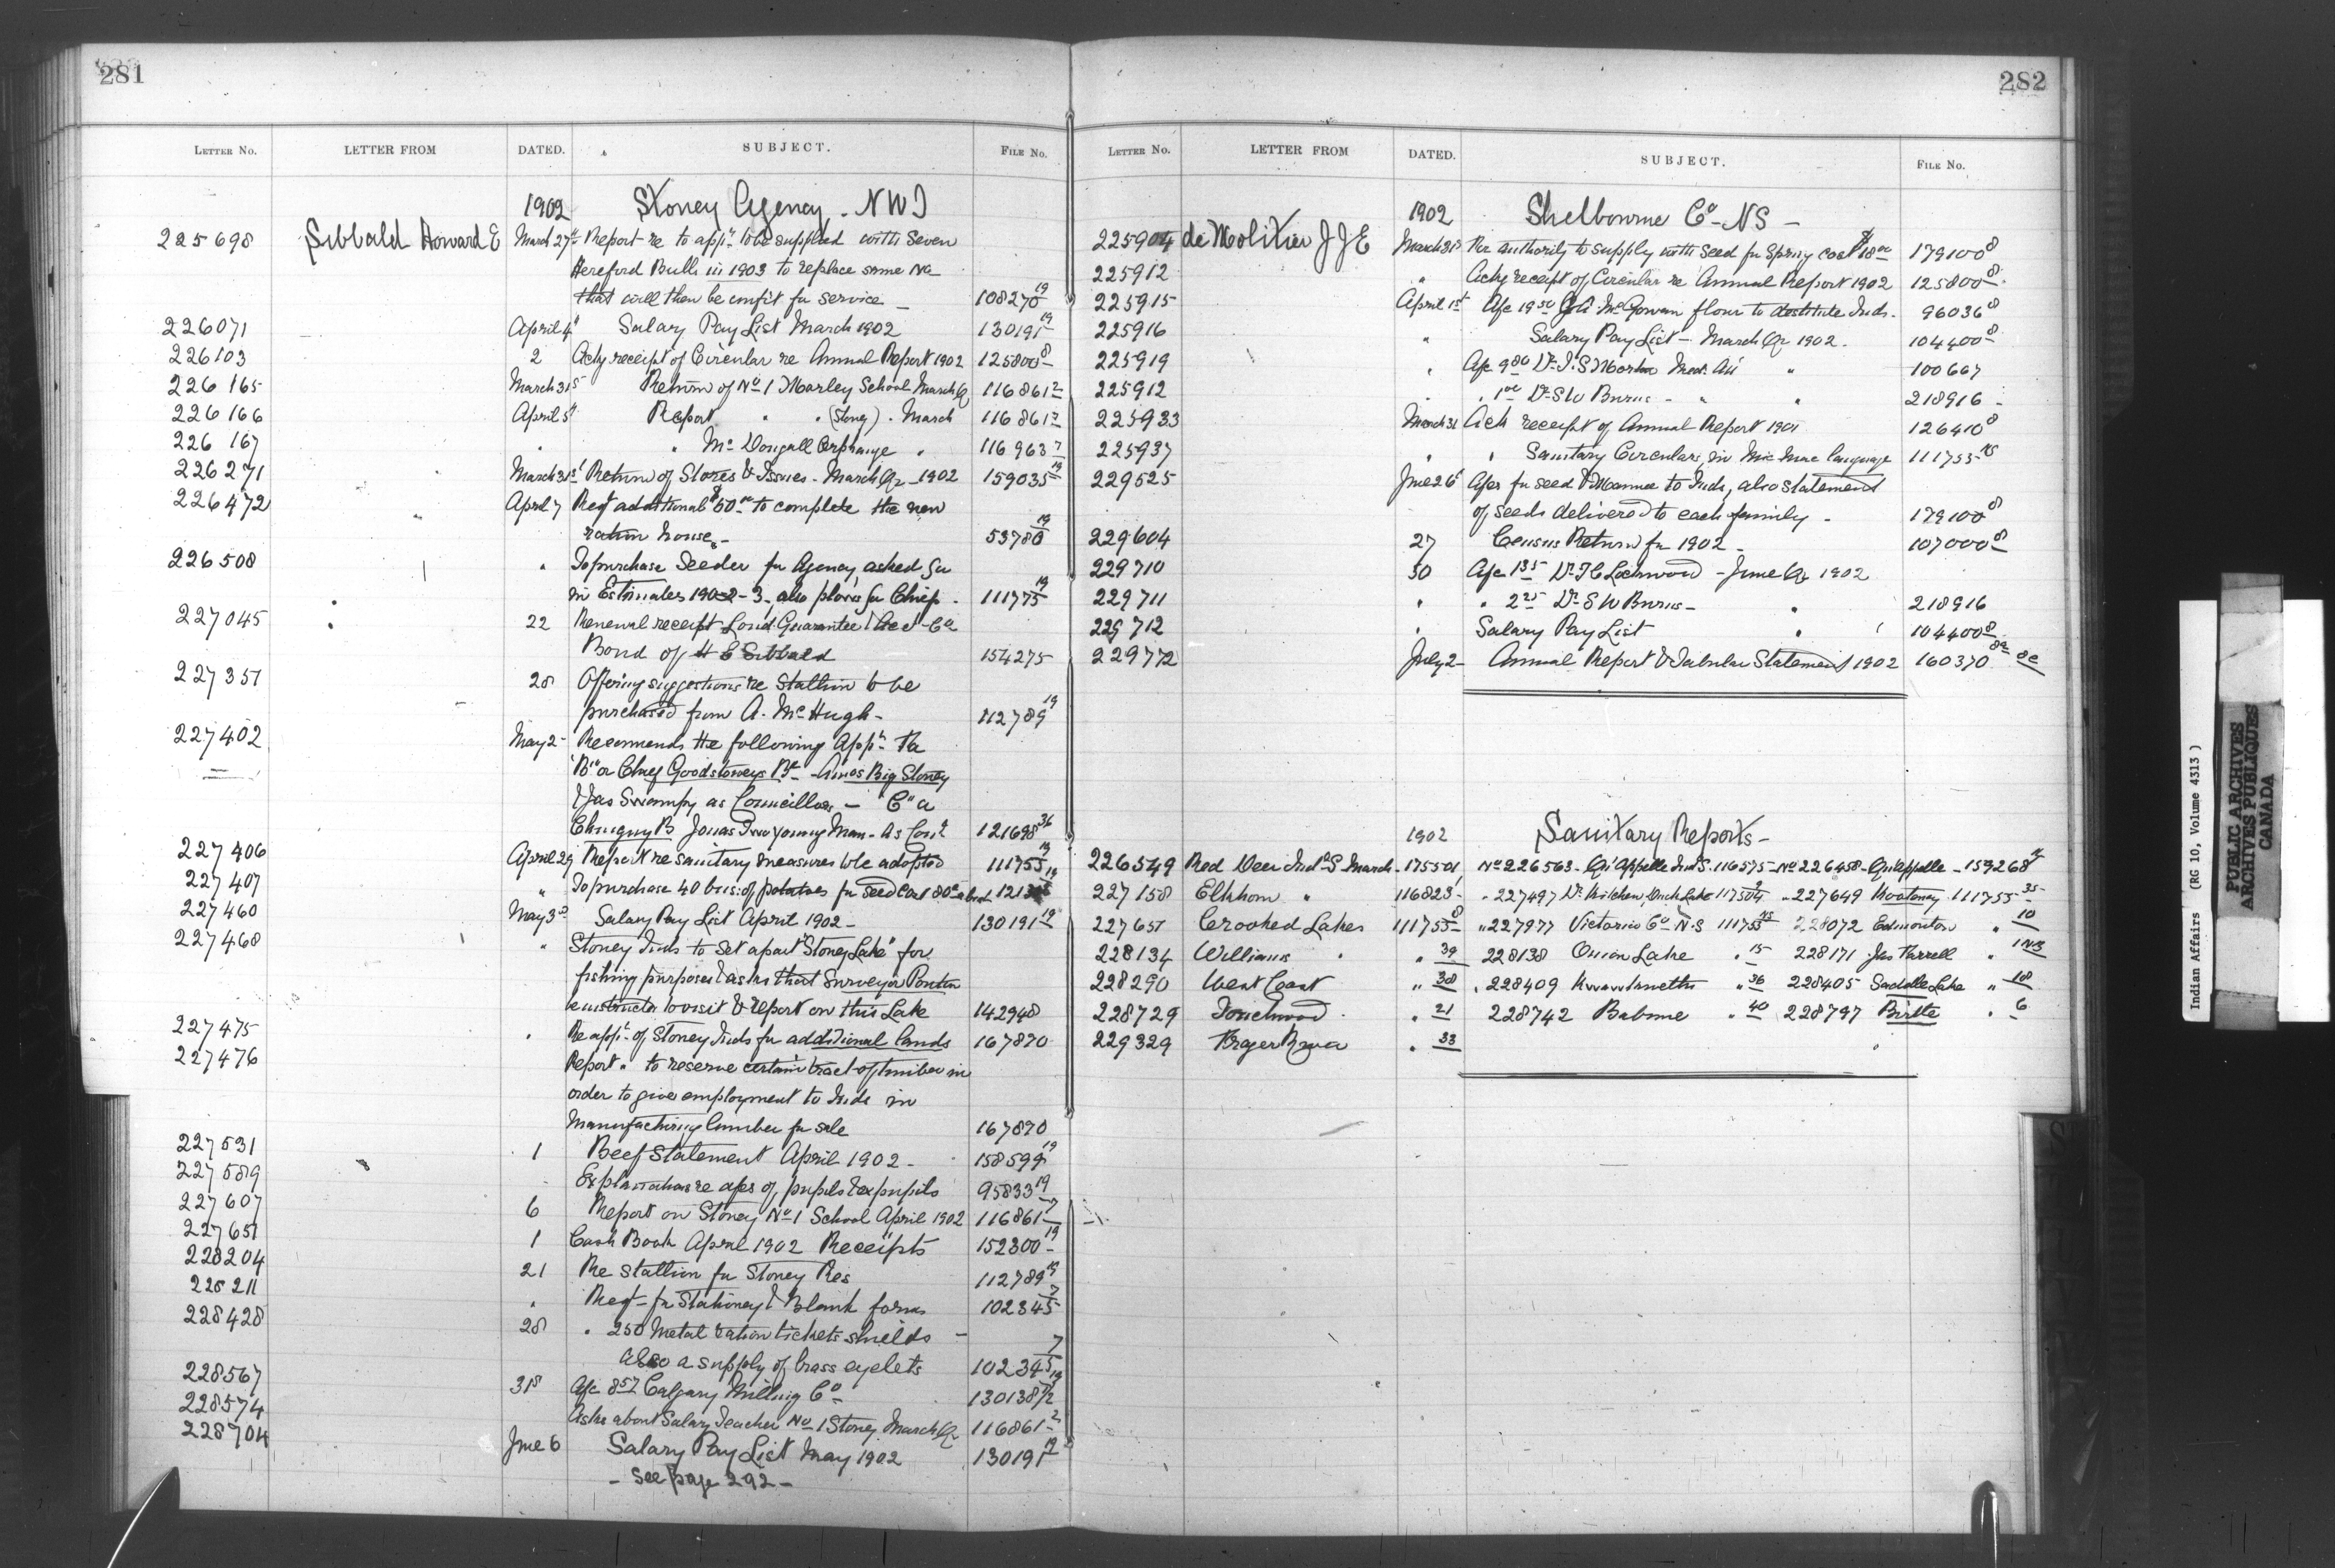 281
LETTER No. LETTER FROM DATED. SUBJECT. FILE No.
1902 Stoney Agency. NWT
225698 Sibbald Howard E March 27th Report re to appn to be supplied with Seven
Hereford Bulls in 1903 to replace same No
that will then be unfit for service — 108270 19
226071 April 4th Salary Pay List March 1902 130191 19
226103 2 Ackg receipt of Circular re Annual Report 1902 125800 8
226165 March 31st Return of No 1 Morley School March Qr 116861 2
226166 April 5th Report " " (Stoney) . March 116861 7
226167 " " McDougall Orphanage " 116963 7
226271 March 31st Return of Stores & Issues - March Qr - 1902 159035 19
226472 April 7 Reqt additional $50.00 to complete the new
ration house - 53780 19
226508 " To purchase Seeder for Agency asked for
in Estimates 1902-3, also plows for Chief - 111775 19
227045 22 Renewal receipt Lond. Guarantee & Acc. Co
Bond of H E Sibbald 154275
227351 28 Offering suggestions re Stallion to be
purchased from A. McHugh - 112789 19
227402 May 2 Recommends the following Appts Re
"B" a Chief Goodstoneys Bd - Amos Big Stoney
& Jas Swampy as Councillors - "C" a
Chiniquy B Jonas Two young Man - as Counr 121698 36
227406 April 29 Report re sanitary measures to be adopted 111755 19
227407 " To purchase 40 bus: of potatoes for seed cost 80c a bush
227460 May 3rd Salary Pay List April 1902 - 130191 19
227468 " Stoney Inds to set apart "Stoney Lake" for
fishing purposes & asks that Surveyor Ponton
instructed to visit & report on this Lake 142948
227475 " Re appn of Stoney Inds for additional lands 167870
227476 Report " to reserve certain tract of timber in
order to give employment to Inds in
Manufacturing lumber for sale 167870
227531 1 Beef Statement April 1902 - 158599 19
227589 Explanations re ages of pupils & expupils 95833 19
227607 6 Report on Stoney No 1 School April 1902 116861 7
227651 1 Cash Book April 1902 Receipts 152300 19
228204 21 Re Stallion for Stoney Res 112789 19
228211 " Reqt for Stationery & Blank forms 102345 7
228428 28 " 250 Metal ration tickets shields -
also a supply of brass eyelets 102345 7
228567 31st A/c 8.57 Calgary Milling Co 130138
228574 Asks about Salary Teacher No 1 Stoney March Qr 116861 2
228704 June 6 Salary Pay List May 1902 130191 19
- see page 292 -
282
LETTER No. LETTER FROM DATED. SUBJECT. FILE No.
1902 Shelbourne Co - NS -
225904 de Molitor J J E March 31st For authority to supply with seed for Spring cost $18.00 179100 8
225912 " Ackg receipt of Circular re Annual Report 1902 125800 8
225915 April 1st A/c 19.50 McGowan flour to destitute Inds. 96036 8
225916 " Salary Pay List - March Qr 1902. 104400 8
225919 " A/c 9.80 Dr. Morton Med. Att " 100667
225912 " " 1.00 Dr S W Burns - " " 218916
225933 March 31 Ack receipt of Annual Report 1901 126410 8
225937 " " Sanitary Circulars, in Mic Mac language 111755
229525 June 26th A/cs for seed & Manure to Inds, also statement
of seeds delivered to each family - 179100 8
229604 27 Census Return for 1902 - 107000 8
229710 30 A/c 1.35 Dr Lockwood - June Qr 1902
229711 " " 2.25 Dr S W Burns - " 218916
229712 " Salary Pay List " 104400 8
229772 July 2 Annual Report & Tabular Statement 1902 160370
1902 Sanitary Reports -
226549 Red Deer Indl S. March - 175501, No 226563 - Qu'Appelle Ind S. 116575 - No 226458 - Qu'Appelle - 159268
227158 Elkhorn " 116823 - " 227497 Dr Mitchell Duck Lake 117504 " 227649 Kootenay 111755 35
227651 Crooked Lakes 111755 8 " 227977 Victoria Co N.S 111755 228072 Edmonton " 10
228134 Williams " " 39 228138 Onion Lake " 15 228171 Jas Farrell " 1 NB
228290 West Coast " 38 " 228409 " 36 228405 Saddle Lake " 18
228729 Touchwood " 21 228742 Babine " 40 228797 Birtle " 6
229329 Fraser River " 33
Indian Affairs (RG 10, Volume 4313)
PUBLIC ARCHIVES
ARCHIVES PUBLIQUES
CANADA